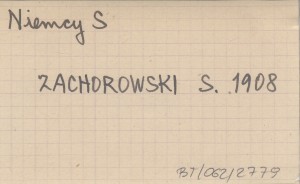 Niemcy S
ZACHOROWSKI S. 1908
BT/062/2779